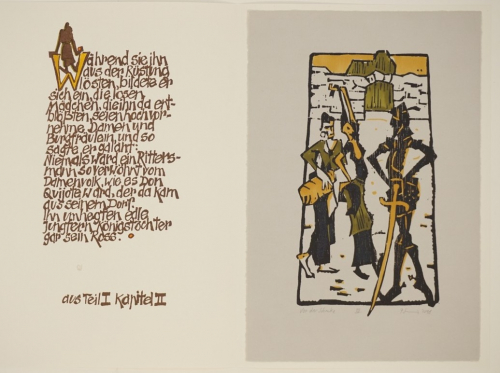 Während sie ihn
aus der Rüstung
lösten, bildete er
sich ein, die losen
Mädchen, die ihn da ent-
blößten, seien hochvor-
nehme Damen und
Burgfräulein, und so
sagte er galant:
Niemals ward ein Ritters-
mann so verwöhnt vom
Damenvolk, wie es Don
Quijote ward, der da kam
aus seinem Dorf:
Ihn umhegten edle
Jungfern Königstöchter
gar sein Ross.
aus Teil I Kapitel II